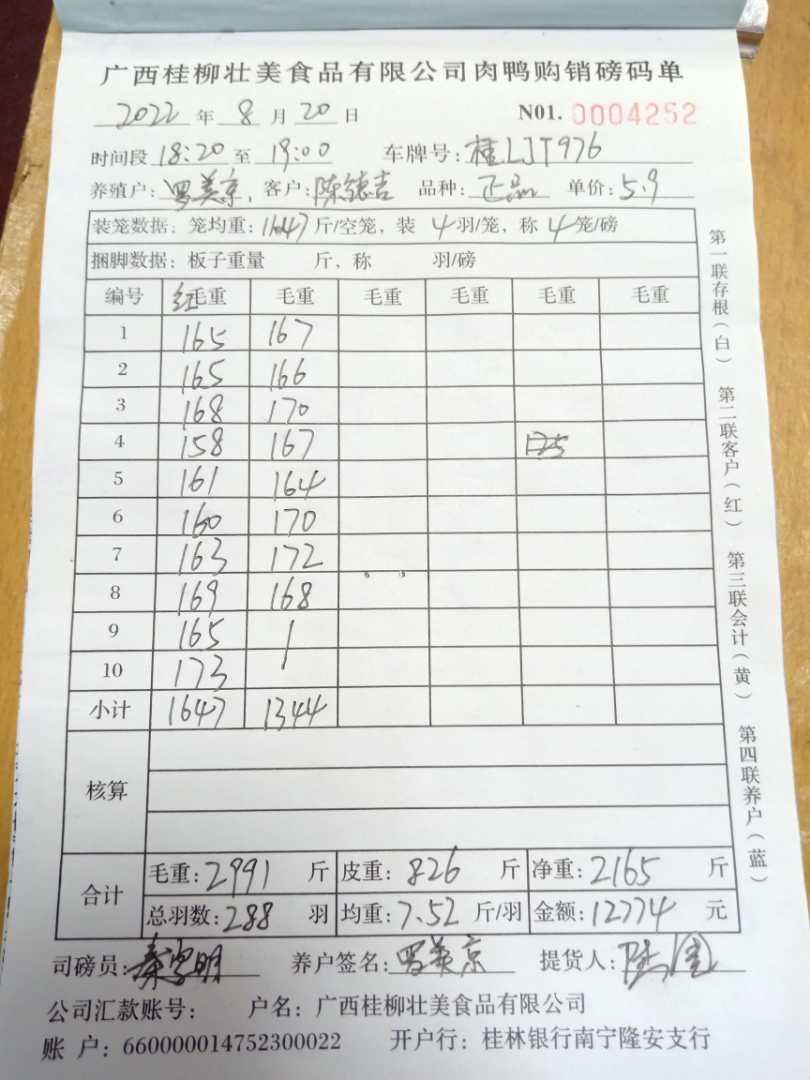 广西桂柳壮美食品有限公司肉鸭购销磅码单
2022年8月20日 N01. 0004252
时间段 18:20 至 19:00 车牌号:桂LJT976
养殖户:罗美京, 客户:陈德吉 品种:正品 单价:5.9
装笼数据:笼均重:11.47斤/空笼,装 4羽/笼,称4笼/磅
捆脚数据:板子重量 斤,称 羽/磅
编号 红毛重 毛重 毛重 毛重 毛重 毛重
1 165 167
2 165 166
3 168 170
4 158 167 125
5 161 164
6 160 170
7 163 172
8 169 168
9 165
10 173
小计 1647 1344
核算
合计
毛重:2991 斤 皮重:826 斤 净重:2165 斤
总羽数:288 羽 均重:7.52 斤/羽 金额:12774 元
司磅员: 养户签名:罗美京 提货人:
公司汇款账号: 户名:广西桂柳壮美食品有限公司
账 户:660000014752300022 开户行:桂林银行南宁隆安支行
第一联存根(白) 第二联客户(红) 第三联会计(黄) 第四联养户(蓝)